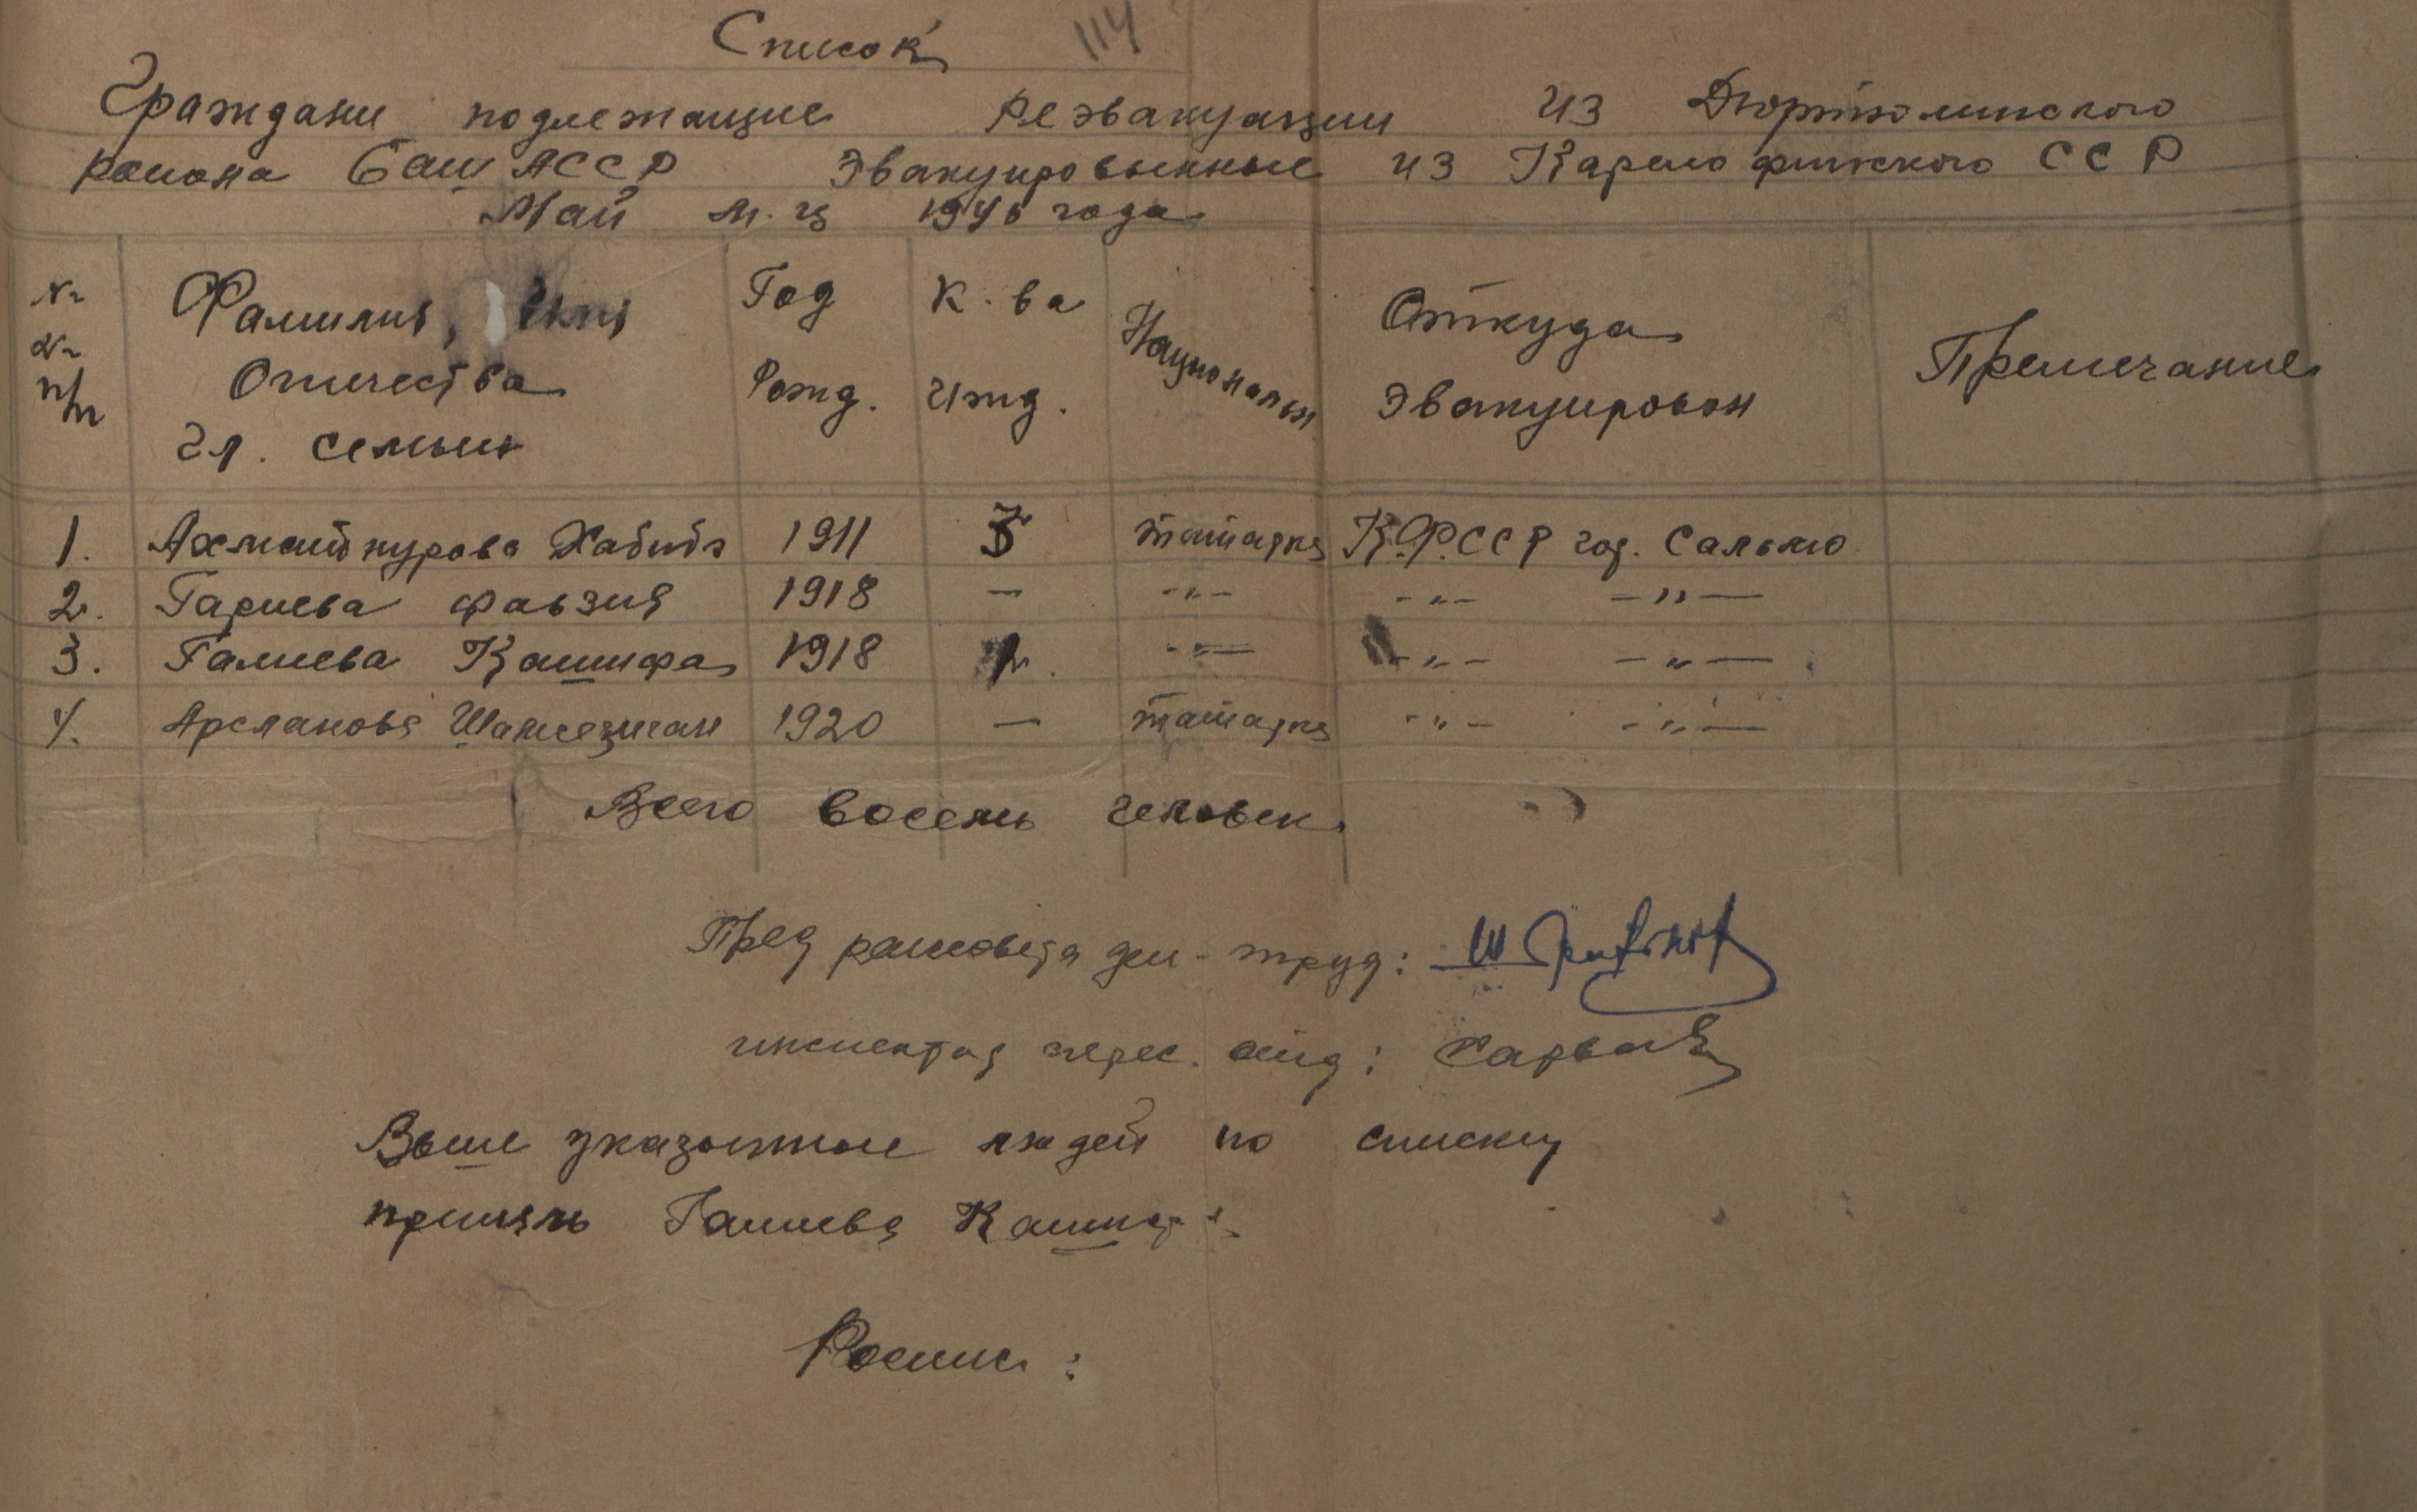 Список 114
Граждани подлежащие Реэвакуации из Дюртюлинского
района Баш АССР Эвакуированные из Карело финского ССР
Май м-ц 1946 года
№ № п/п Фамилия, Имя Отчества гл. семьи Год Рожд. К-ва Ижд. Национальн Откуда Эвакуирован Премечание
1. Ахматнурова Хабиба 1911 3 татарка К.Ф.ССР гор. Сальмо
2. Гариева фавзия 1918 — -"- -"- -"-
3. Галиева Кашифа 1918 1 -"- -"- -"-
4. Арсланова Шамсезиган 1920 — татарка -"- -"-
Всего восемь человек.
Пред райсовета деп-труд:
инспектор перес. отд:
Выше указанные людей по списку
принял Галиева Кашифа
Роспис: